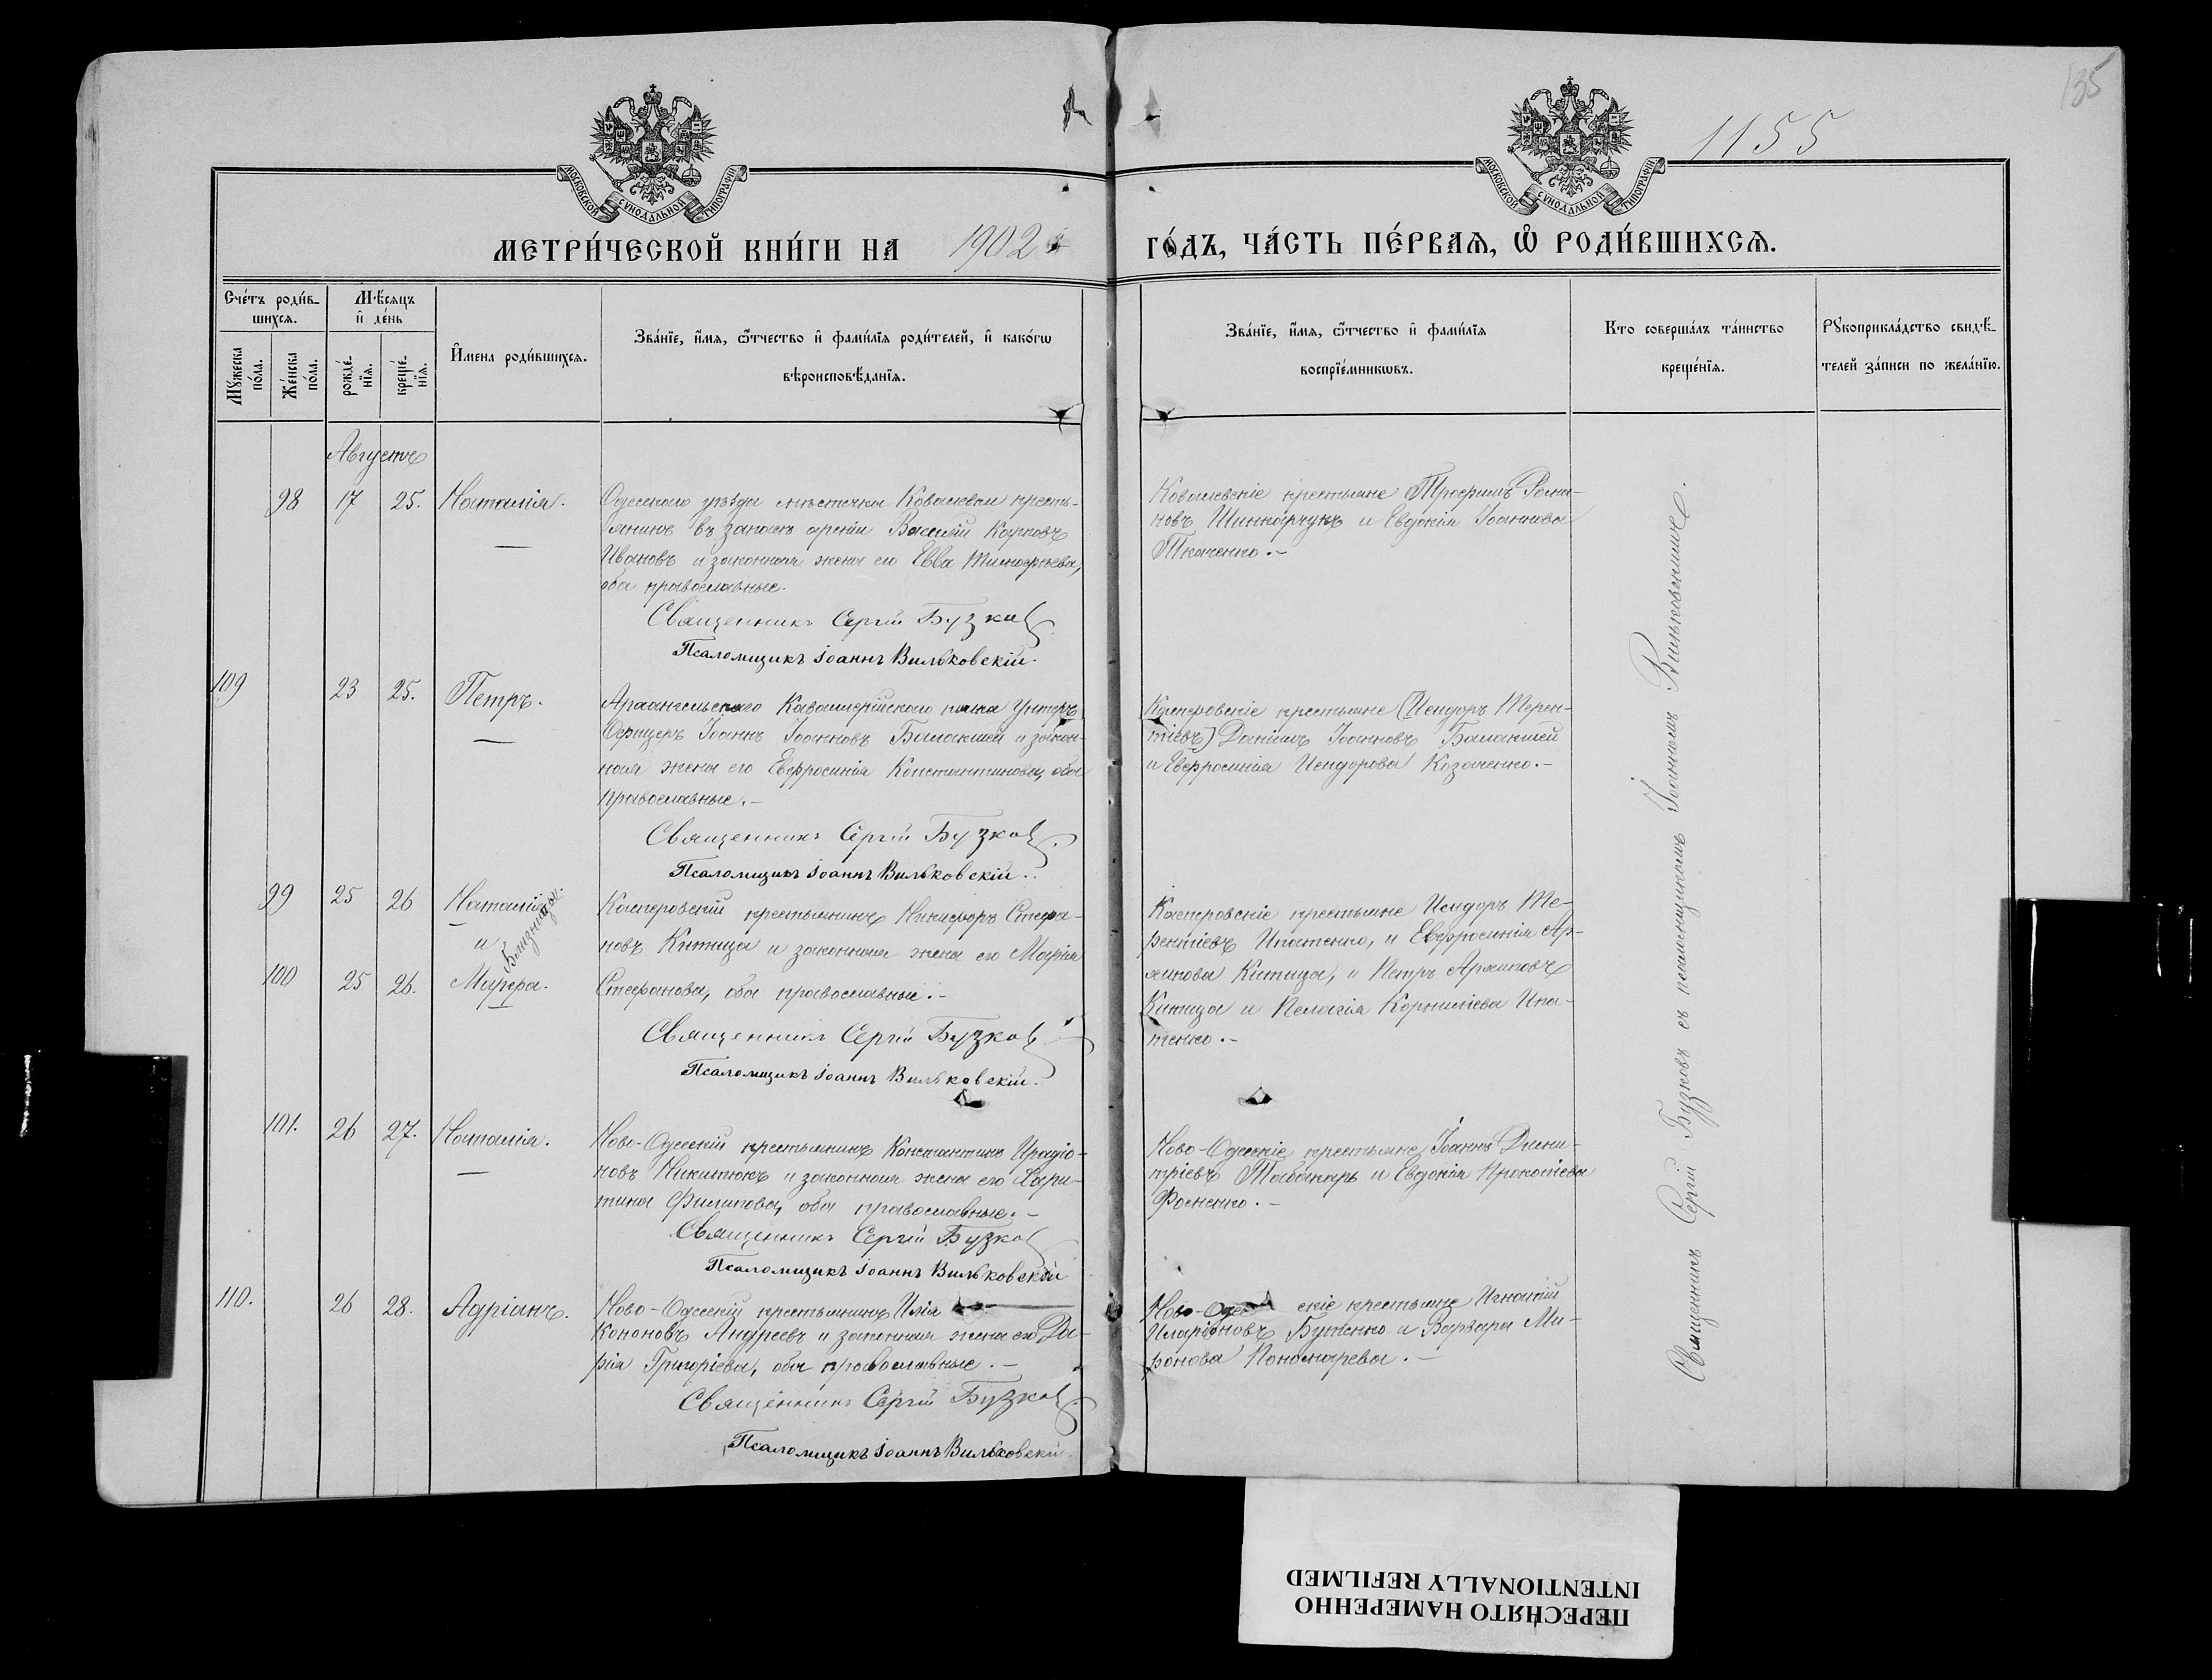 135
1155
МОСКОВСКОЙ СѴНОДАЛЬНОЙ ТИПОГРАФІИ
МОСКОВСКОЙ СѴНОДАЛЬНОЙ ТИПОГРАФІИ
МЕТРИ́ЧЕСКОЙ КНИ́ГИ НА 1902
ГО́ДЪ, ЧА́СТЬ ПЕ́РВАѦ, Ѽ РОДИ́ВШИХСѦ.
Сче́тъ роди́в-
шихсѧ.
Мѣ́сѧцъ
и҆ де́нь
Мꙋ́жеска
по́ла.
Же́нска
по́ла.
рожде́-
нїѧ.
креще́-
нїѧ.
И҆мена̀ роди́вшихсѧ.
Зва́нїе, и҆́мѧ, ѻ҆́тчество и҆ фами́лїѧ роди́телей, и҆ како́гѡ
вѣроисповѣ́данїѧ.
Зва́нїе, и҆́мѧ, ѻ҆́тчество и҆ фами́лїѧ
воспрїе́мникѡвъ.
Кто̀ соверша́лъ та́инство
креще́нїѧ.
Рꙋкоприкла́дство свидѣ́-
телей за́писи по жела́нїю.
Августъ
98 17 25. Наталія.
Одесскаго уѣзда мѣстечка Ковалевки кресть-
янинъ въ запасѣ арміи Василій Карповъ
Ивановъ и законная жена его Евва Тимофѣева,
оба православные.
Священникъ Сергій Бузковъ
Псаломщикъ Іоаннъ Вильковскій.
Ковалевскіе крестьяне Трофимъ Рома-
новъ Шинкарчукъ и Евдокія Іоаннова
Ткаченко.-
109 23 25. Петръ.
Архангельскаго Кавалерійскаго полка Унтеръ
Офицеръ Іоаннъ Іоанновъ Балакшей и закон-
ная жена его Евфросинія Константинова, оба
православные.-
Священникъ Сергій Бузковъ.
Псаломщикъ Іоаннъ Вильковскій.
Касперовскіе крестьяне (Исидоръ Терен-
тіевъ) Даніилъ Іоанновъ Балакшей
и Евфросинія Исидорова Козаченко.-
99 25 26 Наталія
и
Близнята.
100 25 26. Марфа.
Касперовскій крестьянинъ Никифоръ Стефа-
новъ Китица и законная жена его Марія
Стефанова, оба православные.-
Священникъ Сергій Бузковъ
Псаломщикъ Іоаннъ Вильковскій.
Касперовскіе крестьяне Исидоръ Те-
рентіевъ Ипатенко, и Евфросинія Ар-
хипова Китица, и Петръ Архиповъ
Китица и Пелагія Корниліева Ипа-
тенко.-
101. 26 27. Наталія.
Ново-Одесскій крестьянинъ Константинъ Иродіо-
новъ Никитюкъ и законная жена его Хари-
тина Филипова, оба православные.-
Священникъ Сергій Бузковъ
Псаломщикъ Іоаннъ Вильковскій
Ново-Одесскіе крестьяне Іоаннъ Дими-
тріевъ Табакарь и Евдокія Прокопіева
110. 26 28. Адріанъ.
Ново-Одесскій крестьянинъ Илія
Кононовъ Андреевъ и законная жена его Да-
рія Григоріева, оба православные.-
Священникъ Сергій Бузковъ.
Псаломщикъ Іоаннъ Вильковскій
Ново-Одесскіе крестьяне Игнатій
Иларіоновъ Буженко и Варвара Ми-
ронова Пономарева.-
Священникъ Сергій Бузковъ съ псаломщикомъ Іоанномъ Вильковскимъ.
ПЕРЕСНЯТО НАМЕРЕННО
INTENTIONALLY REFILMED